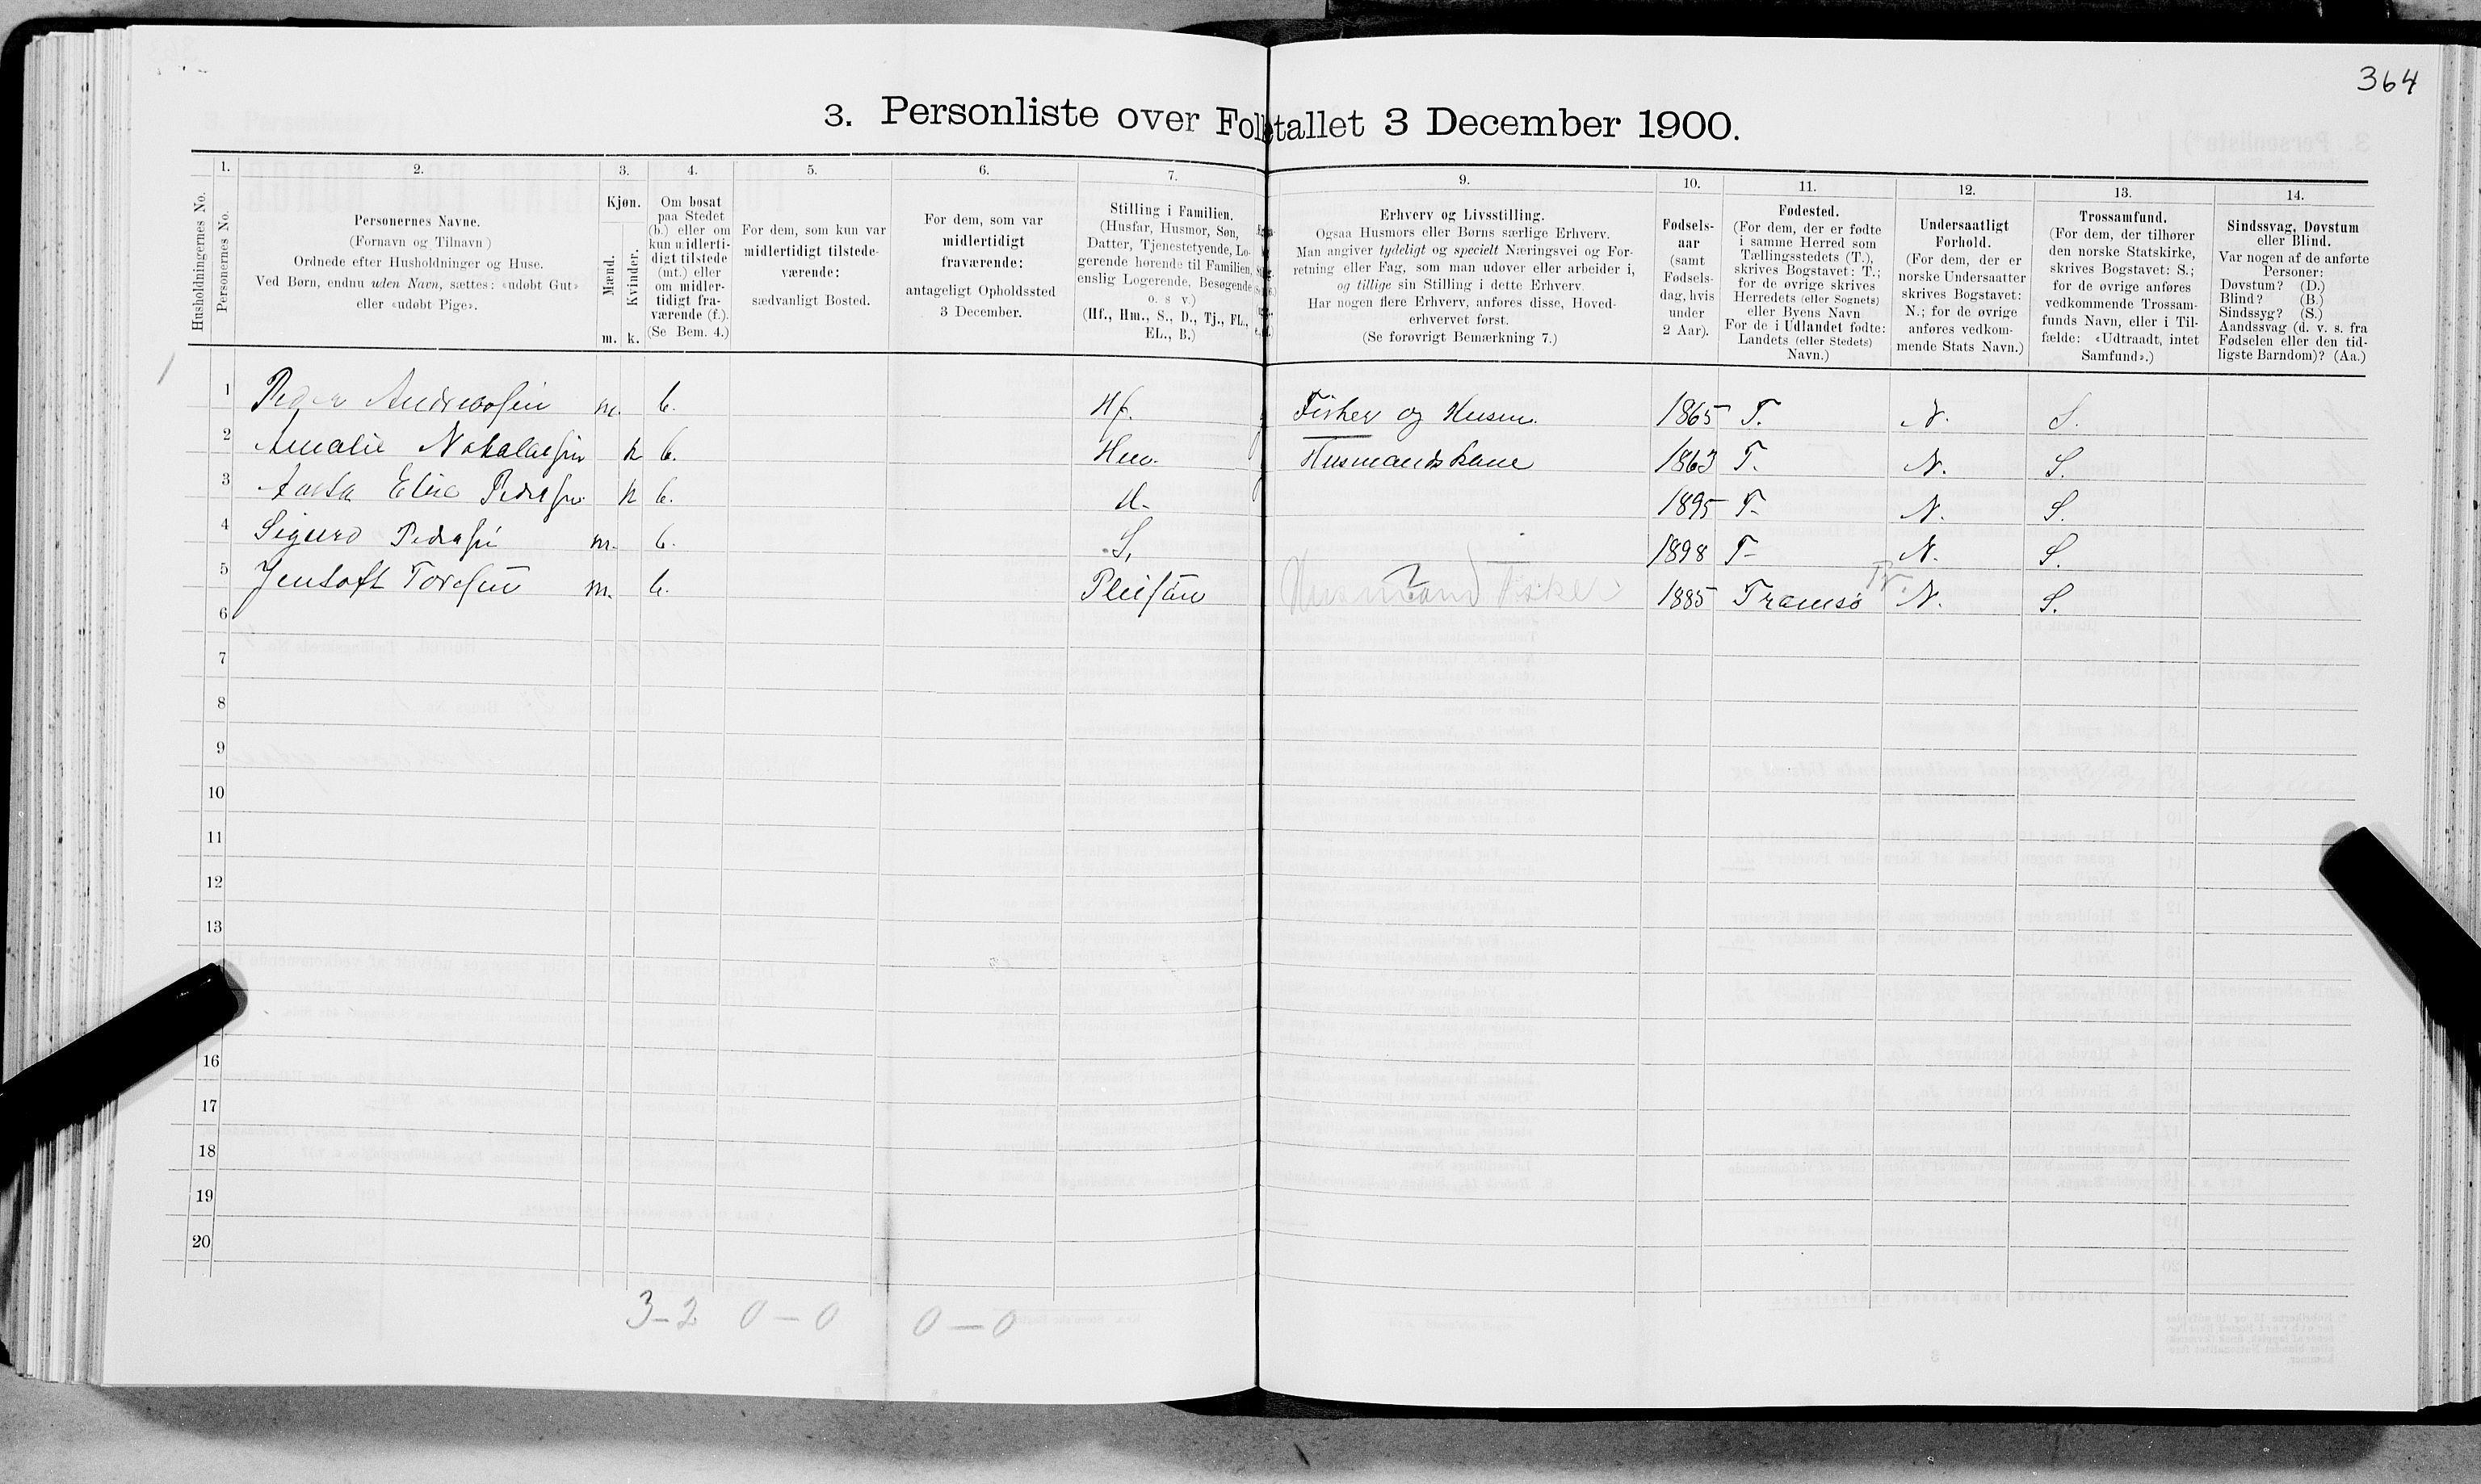 364
3. Personliste over Folketallet 3 December 1900.
1. 2. 3. 4. 5. 6. 7. 9. 10. 11. 12. 13. 14.
Husholdningernes No.
Personernes No.
Personernes Navne.
(Fornavn og Tilnavn)
Ordnede efter Husholdninger og Huse.
Ved Børn, endnu uden Navn, sættes: «udøbt Gut»
eller «udøbt Pige».
Kjøn.
Mænd.
Kvinder.
m. k.
Om bosat
paa Stedet
(b.) eller om
kun midlerti-
digt tilstede
(mt.) eller
om midler-
tidigt fra-
værende (f.).
(Se Bem. 4.)
For dem, som kun var
midlertidigt tilstede-
værende:
sædvanligt Bosted.
For dem, som var
midlertidigt
fraværende:
antageligt Opholdssted
3 December.
Stilling i Familien.
(Husfar, Husmor, Søn,
Datter, Tjenestetyende, Lo-
gerende hørende til Familien,
enslig Logerende, Besøgende
o. s v.)
(Hf., Hm., S., D., Tj., FL.,
EL., B.)
Erhverv og Livsstilling.
Ogsaa Husmors eller Børns særlige Erhverv.
Man angiver tydeligt og specielt Næringsvei og For-
retning eller Fag, som man udøver eller arbeider i,
og tillige sin Stilling i dette Erhverv.
Har nogen flere Erhverv, anføres disse, Hoved-
erhvervet først.
(Se forøvrigt Bemærkning 7.)
Fødsels-
aar
(samt
Fødsels-
dag, hvis
under
2 Aar).
Fødested.
(For dem, der er fødte
i samme Herred som
Tællingsstedets (T.),
skrives Bogstavet: T.;
for de øvrige skrives
Herredets (eller Sognets)
eller Byens Navn
For de i Udlandet fødte:
Landets (eller Stedets)
Navn.)
Undersaatligt
Forhold.
(For dem, der er
norske Undersaatter
skrives Bogstavet:
N.; for de øvrige
anføres vedkom-
mende Stats Navn.)
Trossamfund.
(For dem, der tilhører
den norske Statskirke,
skrives Bogstavet: S.;
for de øvrige anføres
vedkommende Trossam-
funds Navn, eller i Til-
fælde: «Udtraadt, intet
Samfund».)
Sindssvag, Døvstum
eller Blind.
Var nogen af de anførte
Personer:
Døvstum? (D.)
Blind? (B.)
Sindssyg? (S.)
Aandssvag (d. v. s. fra
Fødselen eller den tid-
ligste Barndom)? (Aa.)
1 Peder Andreasen m. b. Hf. Fisker og Husm. 1865 T. N. S.
2 Amalie k b. Hm. Husmandskone 1863 T. N. S.
3 Aasta Elise Pedersen k b. D. 1895 T. N. S.
4 Sigurd Pedersen m. b. S. 1898 T. N. S.
5 Jentoft m. b. Pleisøn Husmand Fisker 1885 Tromsø N. S.
6
7
8
9
10
11
12
13
16
17
18
19
20
3-2 0-0 0-0